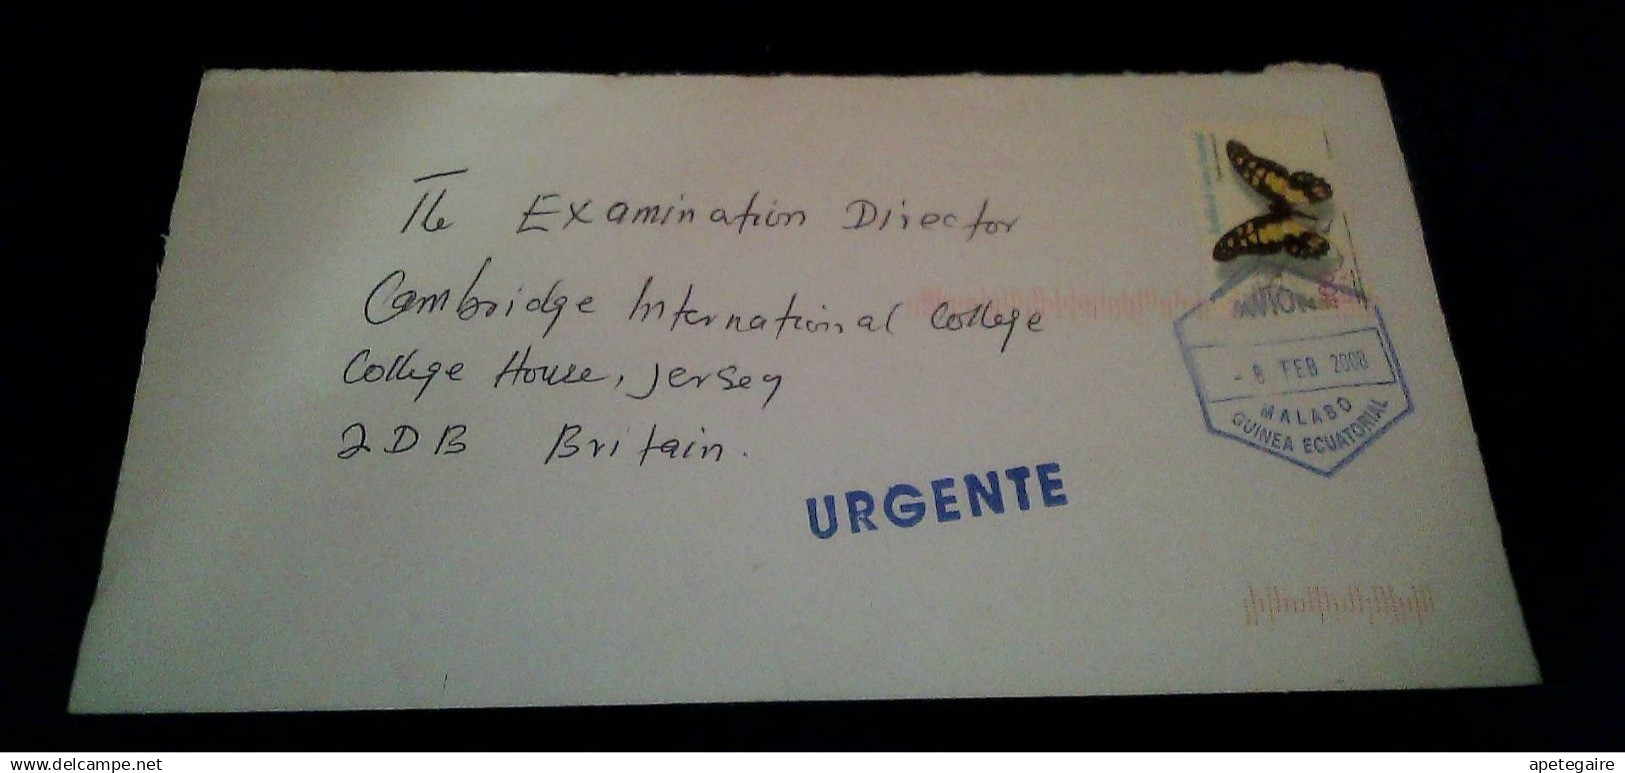 The Examination Director
Cambridge International College
College House, Jersey
2DB Britain.
URGENTE
AVION
- 8 FEB 2008
MALABO
GUINEA ECUATORIAL
delcampe.net
apetegaire